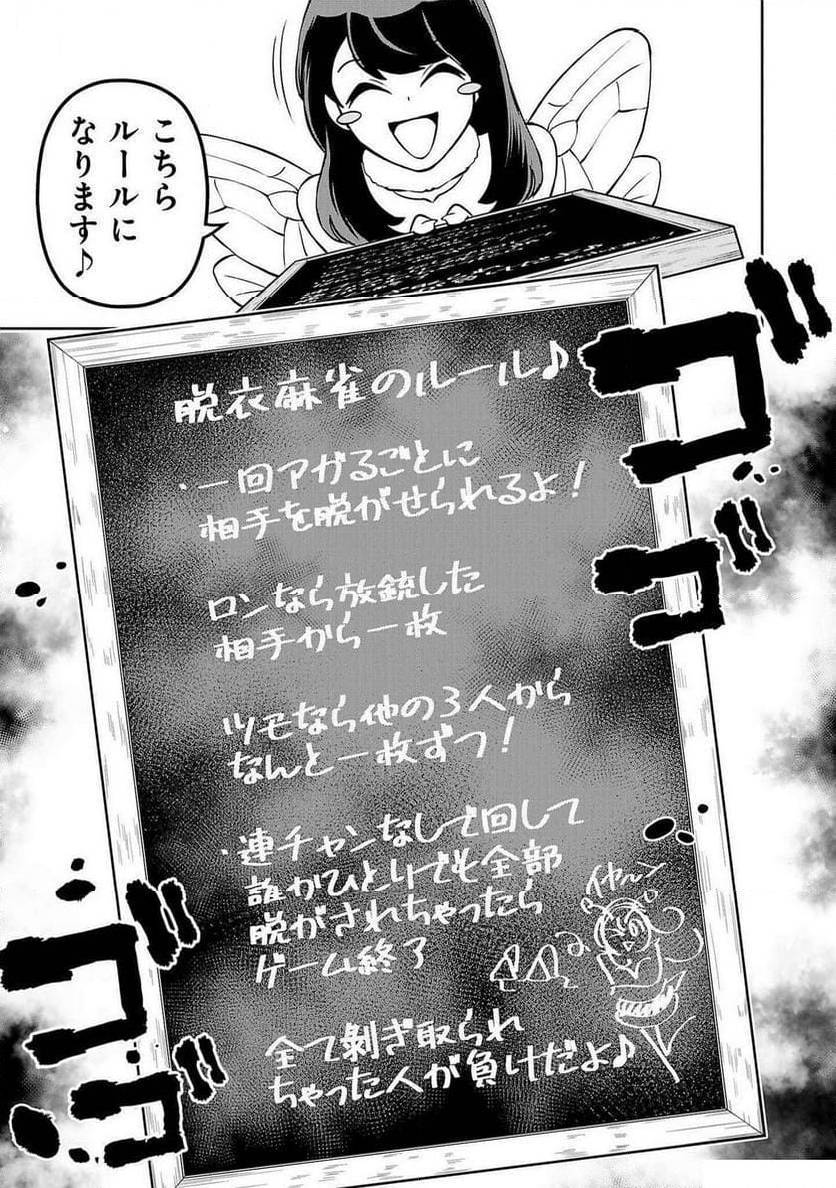 こちら
ルールに
なります♪
脱衣麻雀のルール♪
・一回アガるごとに
相手を脱がせられるよ！
ロンなら放銃した
相手から一枚
ツモなら他の3人から
なんと一枚ずつ！
・連チャンなしで回して
誰かひとりでも全部
脱がされちゃったら
ゲーム終了
イヤ〜ン
全て剝ぎ取られ
ちゃった人が負けだよ♪
ゴゴ
ゴゴ